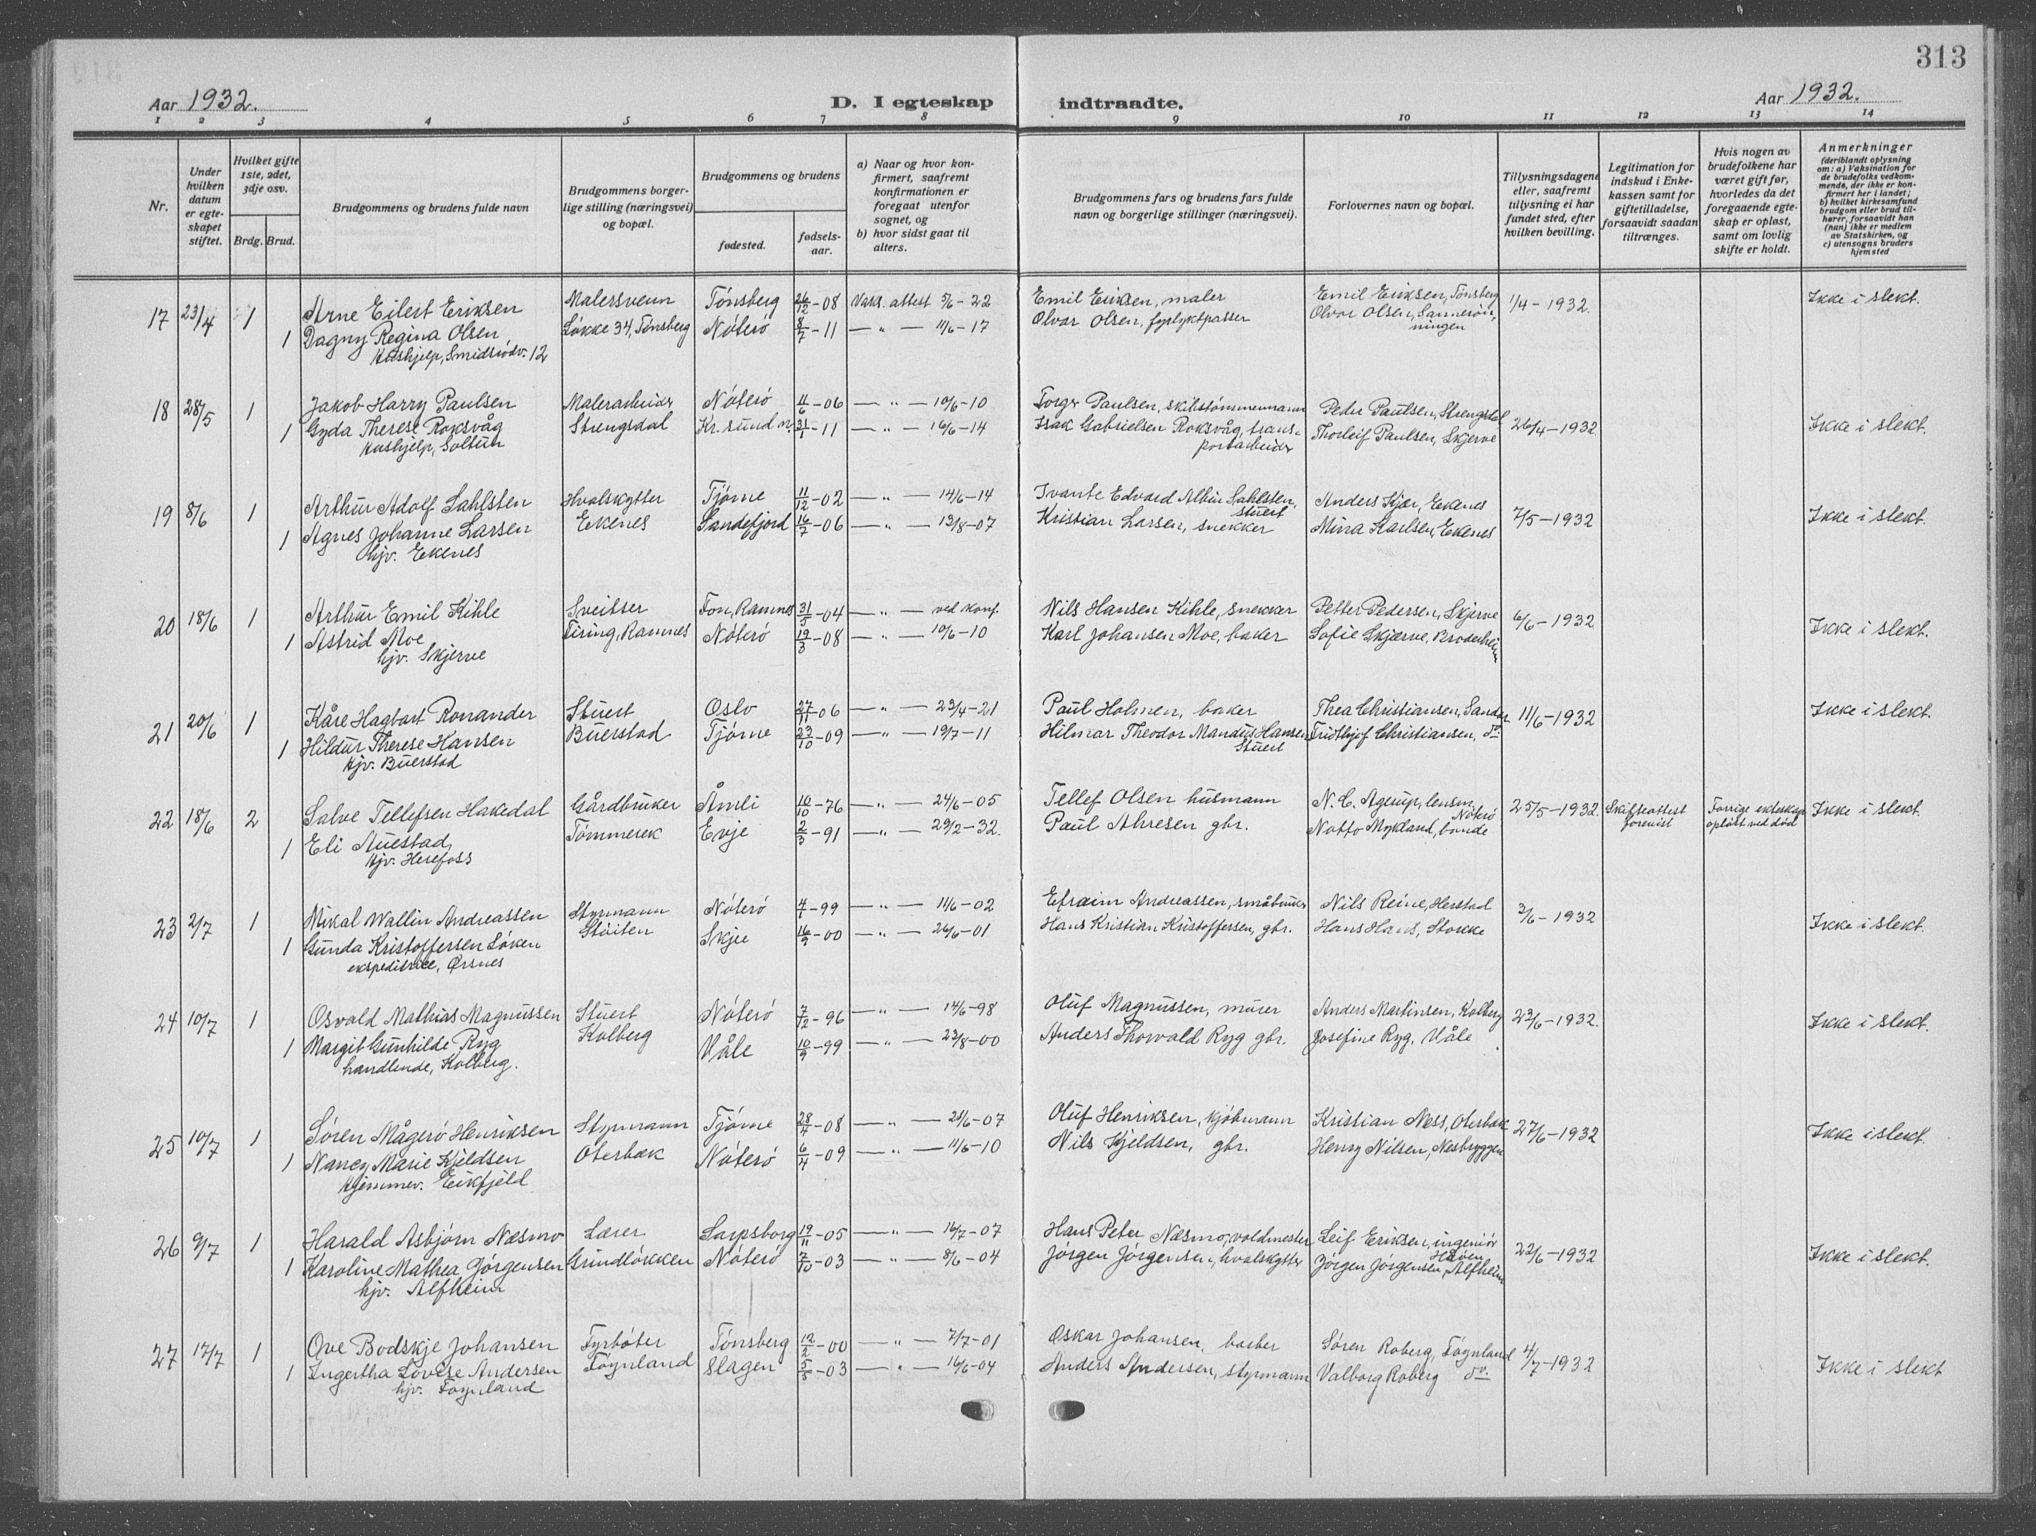 313
Aar 1932.
D. I egteskap indtraadte.
Aar 1932.
1 2 3 4 5 6 7 8 9 10 11 12 13 14
Nr.
Under hvilken datum er egteskapet stiftet.
Hvilket gifte 1ste, 2det, 3dje osv.
Brdg. Brud.
Brudgommens og brudens fulde navn
Brudgommens borgerlige stilling (næringsvei) og bopæl.
Brudgommens og brudens
fødested.
fødselsaar.
a) Naar og hvor konfirmert, saafremt konfirmationen er foregaat utenfor sognet, og
b) hvor sidst gaat til alters.
Brudgommens fars og brudens fars fulde navn og borgerlige stillinger (næringsvei).
Forlovernes navn og bopæl.
Tillysningsdagene eller, saafremt tillysning ei har fundet sted, efter hvilken bevilling.
Legitimation for indskud i Enkekassen samt for giftetilladelse, forsaavidt saadan tiltrænges.
Hvis nogen av brudefolkene har været gift før, hvorledes da det foregaaende egteskap er opløst, samt om lovlig skifte er holdt.
Anmerkninger
(deriblandt oplysning om: a) Vaksination for de brudefolks vedkommende, der ikke er konfirmert her i landet; b) hvilket kirkesamfund brudgom eller brud tilhører, forsaavidt han (hun) ikke er medlem av Statskirken, og c) utensogns bruders hjemsted
17 23/4 1 Arne Eilert Eriksen Malersvenn Tønsberg 26/12-08 Vaks. attest 5/6-22 Emil Eriksen, maler Emil Eriksen, Tønsberg 1/4-1932. Ikke i slekt.
1 Dagny Regina Olsen Løkke 34, Tønsberg Nøterø 8/7-11 — " — 11/6-17 Olvar Olsen, fyrlyktpasser Olvar Olsen,
Hushjelp, Smidsrødv. 12
18 28/5 1 Jakob Harry Paulsen Malerarbeider Nøterø 11/6-06 — " — 10/6-10 Torger Paulsen, skibstømmermann Peder Paulsen, Strengsdal 26/4-1932 Ikke i slekt.
1 Gyda Therese Roksvåg Strengsdal Kr.sund N 31/1-11 — " — 16/6-14 Isak Gabrielsen Roksvåg, transportarbeider Thorleif Paulsen, Skjerve
Hushjelp, Soltun
19 8/6 1 Arthur Adolf Sahlsten Hvalskytter Tjøme 11/12-02 — " — 14/6-14 Ivante Edvard Albin Sahlsten, stuert Anders Kjær, Ekenes 7/5-1932 Ikke i slekt.
1 Agnes Johanne Larsen Ekenes Sandefjord 16/7-06 — " — 13/8-07 Kristian Larsen, snekker Mina Karlsen, Ekenes
hjv. Ekenes
20 18/6 1 Arthur Emil Kihle Sveitser Fon, Ramnes 31/5-04 — " — ved konf. Nils Hansen Kihle, snekker Petter Pedersen, Skjerve 6/6-1932 Ikke i slekt.
1 Astrid Moe Firing, Ramnes Nøterø 19/3-08 — " — 10/6-10 Karl Johansen Moe, baker Sofie Skjærve, Broderheim
hjv. Skjerve
21 20/6 1 Kåre Hagbart Ronander Stuert Oslo 27/11-06 — " — 23/4-21 Paul Holmen, baker Thea Christiansen, Sandar 11/6-1932 Ikke i slekt.
1 Hildur Therese Hansen Buerstad Tjøme 23/10-09 — " — 19/7-11 Hilmar Theodor Mandius Hansen Stuert Fridthjof Christiansen, do.
Hjv. Buerstad
22 18/6 2 Salve Tellefsen Hakedal Gårdbruker Åmli 10/10-76 — " — 24/6-05 Tellef Olsen husmann N. C. Agerup, lensm. Nøterø 25/5-1932. Skifteattest forevist Forrige ekteskap opløst ved død Ikke i slekt.
1 Eli Auestad, Tømmerek Evje 2/3-91 — " — 29/2-32. Paul Ahresen gbr. Notto Mykland, bonde
Hjv. Herefoss
23 2/7 1 Mikal Wallin Andreassen Styrmann Nøterø 4/1-99 — " — 11/6-02 Efraim Andreassen, småbruker Nils Reine, Herstad 3/6-1932 Ikke i slekt.
1 Gunda Kristoffersen Løken Støiten Skjee 16/9-00 — " — 26/6-01 Hans Kristian Kristoffersen, gbr. Hans Hans, Stokke
ekspeditrice, Ørsnes
24 10/7 1 Osvald Mathias Magnussen Stuert Nøterø 7/12-96 — " — 14/6-98 Oluf Magnussen, murer Anders Martinsen, Kolberg 23/6-1932. Ikke i slekt.
1 Margit Gunhilde Ryg Kolberg Våle 10/9-99 — " — 23/8-00 Anders Thorvald Ryg gbr. Josefine Ryg, Våle
handlende, Kolberg.
25 10/7 1 Søren Mågerø Henriksen Styrmann Tjøme 28/4-08 — " — 21/6-07 Oluf Henriksen, kjøbmann Kristian Ness, Oterbæk 27/6-1932 Ikke i slekt.
1 Nancy Marie Kjeldsen Oterbæk Nøterø 6/4-09 — " — 11/6-10 Nils Kjeldsen, gbr. Henry Nilsen, Nesbryggen
Hjemmev. Eikfjeld
26 9/7 1 Harald Asbjørn Næsmo Lærer Sarpsborg 19/11-05 — " — 16/7-07 Hans Peter Næsmo, voldmester Leif Eriksen, ingeniør 22/6-1932 Ikke i slekt.
1 Karoline Mathea Jørgensen Grindløkken Nøterø 7/10-03 — " — 8/6-04 Jørgen Jørgensen, hvalskytter Jørgen Jørgensen, Alfheim
hjv. Alfheim
27 17/7 1 Ove Bodskje Johansen Fyrbøter Tønsberg 12/2-00 — " — 7/7-01 Oskar Johansen, barber Søren Roberg, Føynland 4/7-1932 Ikke i slekt
1 Ingertha Lovise Andersen Føynland Slagen 5/5-03 — " — 16/6-04 Anders Andersen, styrmann Valborg Roberg do.
hjv. Føynland